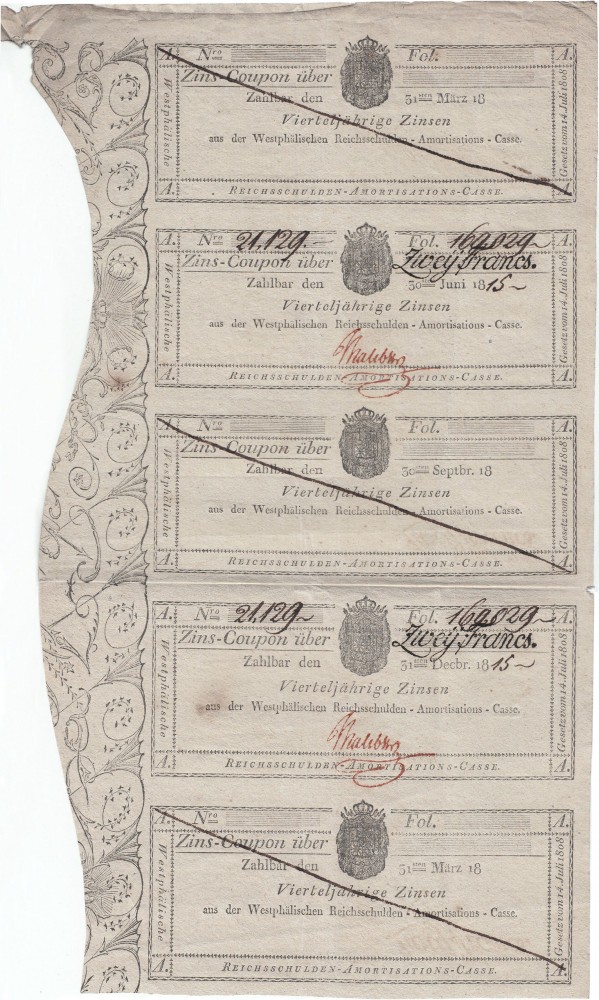 A. Nro Fol. A.
Zins-Coupon über
Zahlbar den 31sten März 18
Vierteljährige Zinsen
aus der Westphälischen Reichsschulden - Amortisations - Casse.
A. Reichsschulden-Amortisations-Casse. A.
Westphälische
Gesetz vom 14. Juli 1808
A. Nro 21.129 Fol. 169029 A.
Zins-Coupon über Zwey francs.
Zahlbar den 30sten Juni 1815
Vierteljährige Zinsen
aus der Westphälischen Reichsschulden - Amortisations - Casse.
A. Reichsschulden-Amortisations-Casse. A.
Westphälische
Gesetz vom 14. Juli 1808
A. Nro Fol. A.
Zins-Coupon über
Zahlbar den 30sten Septbr. 18
Vierteljährige Zinsen
aus der Westphälischen Reichsschulden - Amortisations - Casse.
A. Reichsschulden-Amortisations-Casse. A.
Westphälische
Gesetz vom 14. Juli 1808
A. Nro 21.129 Fol. 169029 A.
Zins-Coupon über Zwey francs.
Zahlbar den 31sten Decbr. 1815
Vierteljährige Zinsen
aus der Westphälischen Reichsschulden - Amortisations - Casse.
A. Reichsschulden-Amortisations-Casse. A.
Westphälische
Gesetz vom 14. Juli 1808
A. Nro Fol. A.
Zins-Coupon über
Zahlbar den 31sten März 18
Vierteljährige Zinsen
aus der Westphälischen Reichsschulden - Amortisations - Casse.
A. Reichsschulden-Amortisations-Casse. A.
Westphälische
Gesetz vom 14. Juli 1808